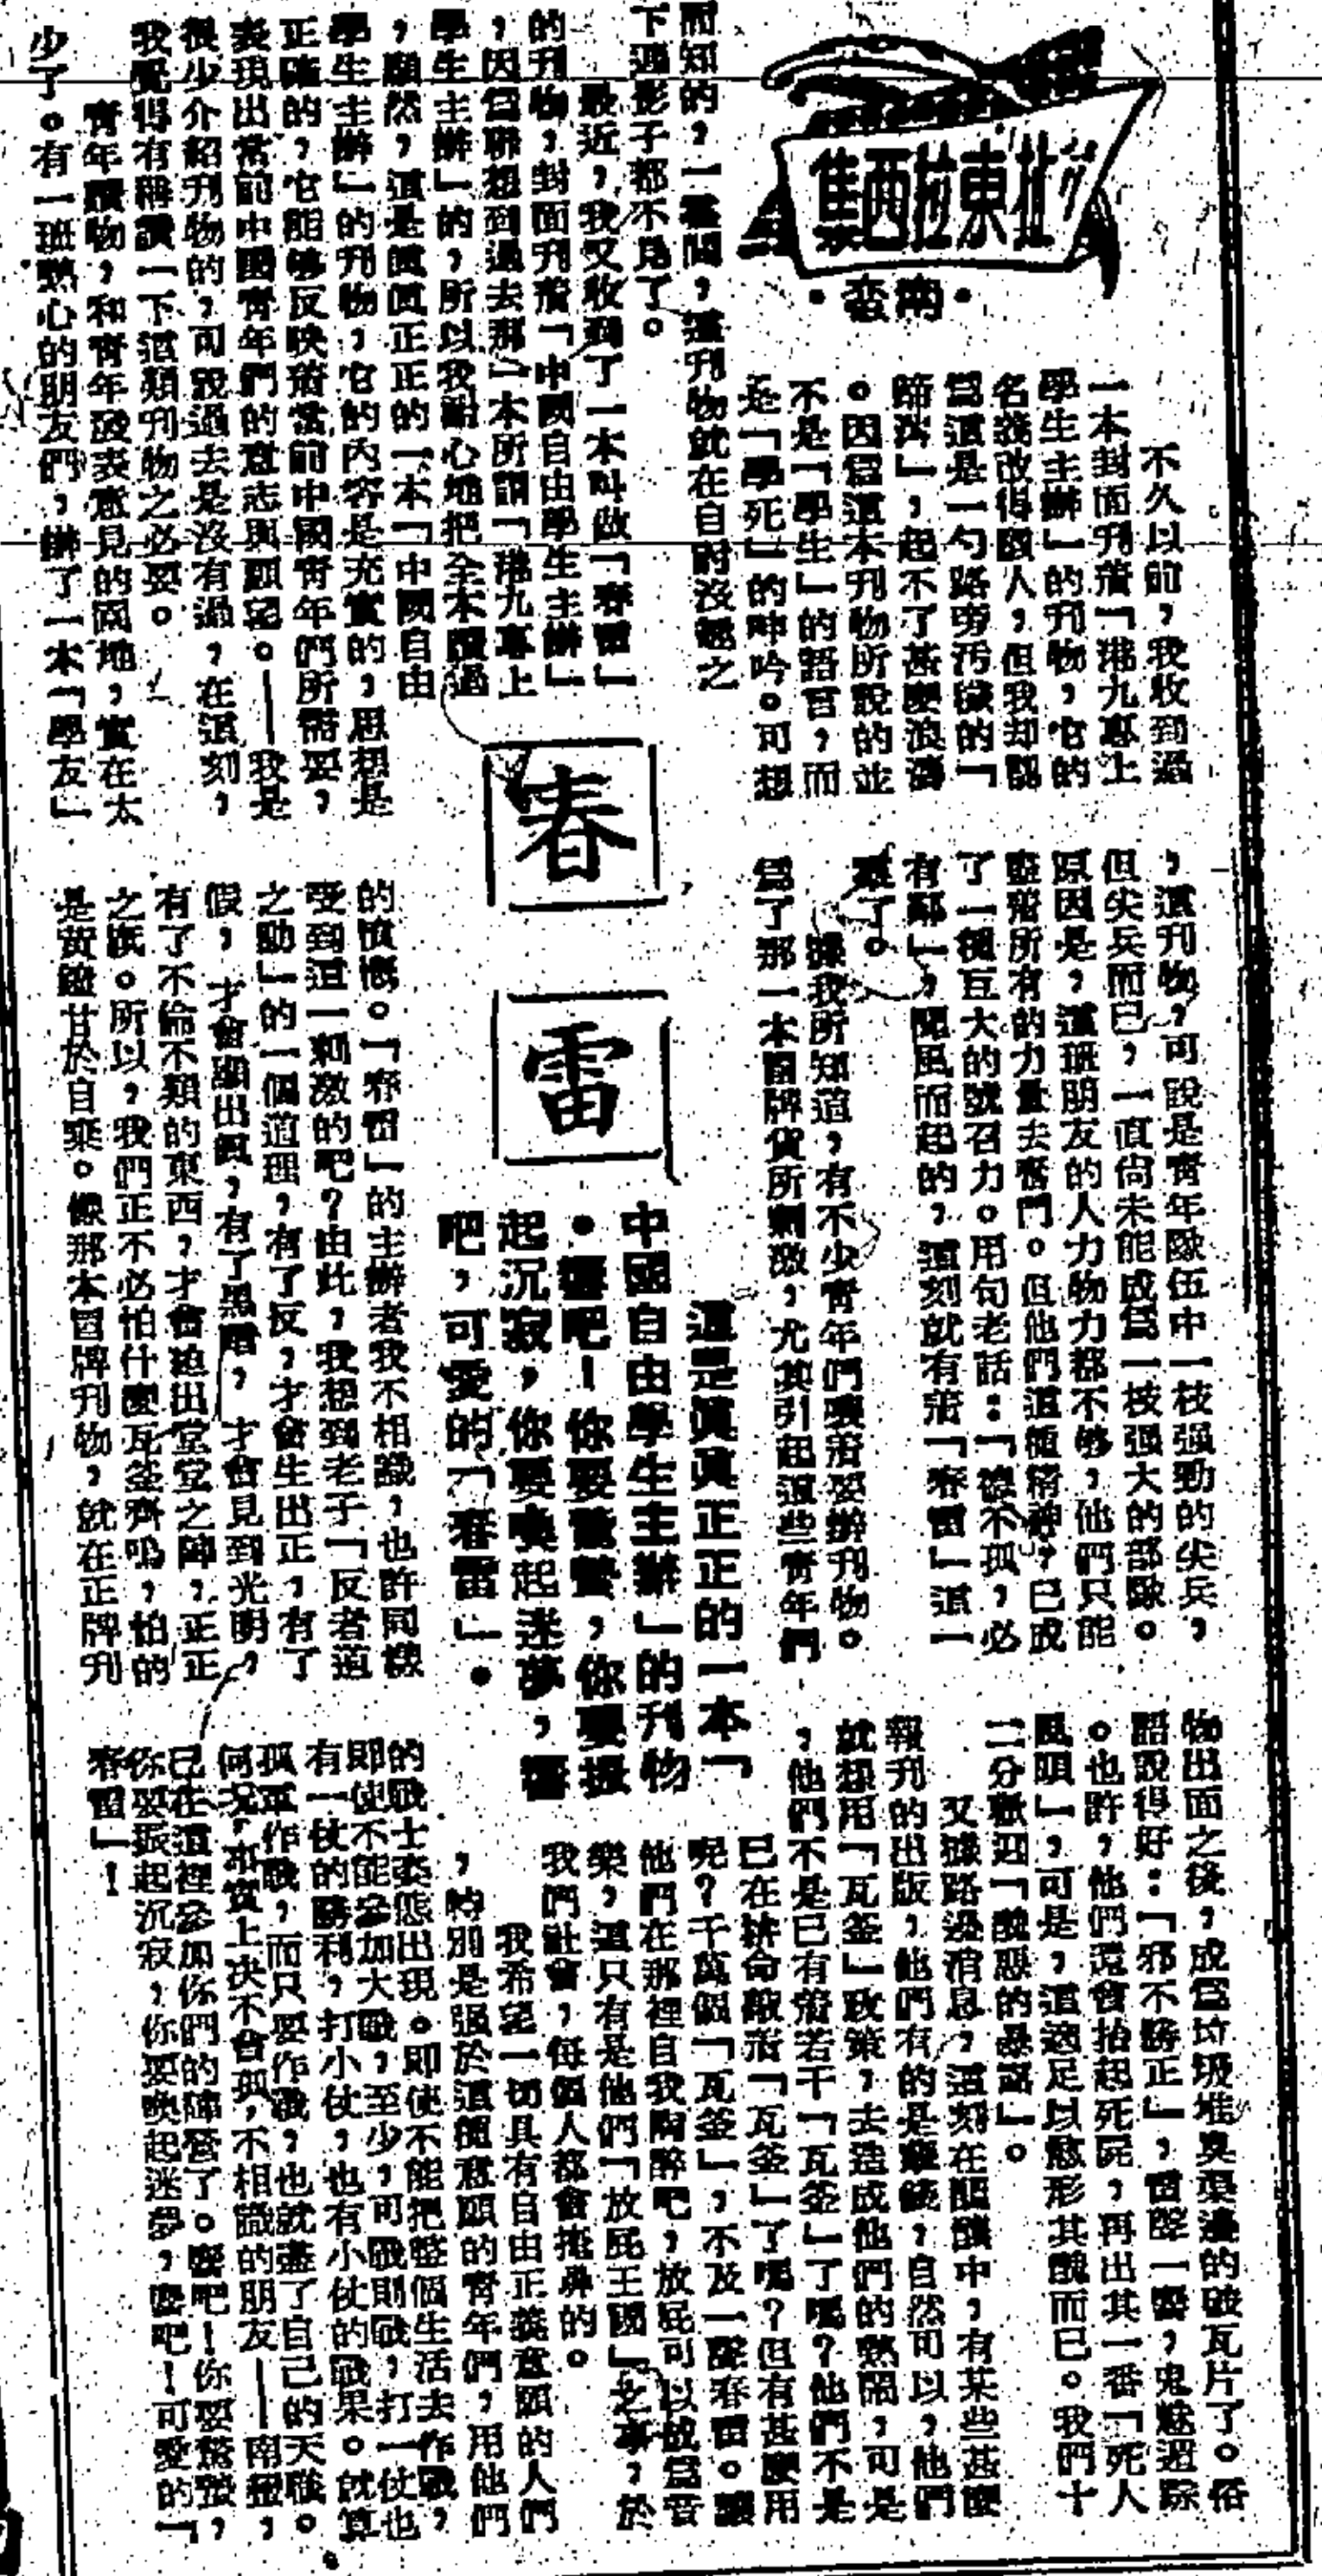 扯東拉西集
·南蠻·
春雷
這是眞眞正正的一本「
中國自由學生主辦」的刊物
·響吧！你要驚蟄，你要振
起沉寂，你要喚起迷夢，響
吧，可愛的「春雷」·
不久以前，我收到過
一本封面刊着「港九專上
學生主辦」的刊物，它的
名義改得頗人，但我却認
爲這是一勺路旁污穢的「
蹄涔」，起不了甚麼浪濤
。因爲這本刊物所說的並
不是「學生」的語言，而
是「學死」的呻吟。可想
而知的，一霎間，這刊物就在自討沒趣之
下連影子都不見了。
最近，我又收到了一本叫做「春雷」
的刊物，封面刊着「中國自由學生主辦」
，因爲聯想到過去那一本所謂「港九專上
學生主辦」的，所以我耐心地把全本讀過
，顯然，這是眞眞正正的一本「中國自由
學生主辦」的刊物，它的內容是充實的，思想是
正確的，它能够反映着當前中國青年們所需要，
表現出當前中國青年們的意志與願望。——我是
很少介紹刊物的，可說過去是沒有過，在這刻，
我覺得有稱讚一下這類刊物之必要。
青年讀物，和青年發表意見的園地，實在太
少了。有一班熱心的朋友們，辦了一本「學友」
，這刊物，可說是青年隊伍中一枝强勁的尖兵，
但尖兵而已，一直尙未能成爲一枝强大的部隊。
原因是，這班朋友的人力物力都不够，他們只能
盡着所有的力量去奮鬥。但他們這種精神，已成
了一種亘大的號召力。用句老話：「德不孤，必
有鄰」，聞風而起的，這刻就有着「春雷」這一
羣了。
據我所知道，有不少青年們嚷着要辦刊物。
爲了那一本冒牌貨所刺激，尤其引起這些青年們
的憤慨。「春雷」的主辦者我不相識，也許同樣
受到這一刺激的吧？由此，我想到老子「反者道
之動」的一個道理，有了反，才會生出正，有了
假，才會顯出眞，有了黑暗，才會見到光明，
有了不倫不類的東西，才會迫出堂堂之陣，正正
之旗。所以，我們正不必怕什麼瓦釜齊鳴，怕的
是黃鐘甘於自棄。像那本冒牌刊物，就在正牌刊
物出面之後，成爲垃圾堆臭渠邊的破瓦片了。俗
語說得好：「邪不勝正」，雷聲一響，鬼魅遁踪
。也許，他們還會抬起死屍，再出其一番「死人
風頭」，可是，這適足以愈形其醜而已。我們十
二分歡迎「醜惡的暴露」。
又據路邊消息，這刻在醞釀中，有某些甚麼
報刊的出版，他們有的是臭錢，自然可以，他們
就想用「瓦釜」政策，去造成他們的熱鬧，可是
，他們不是已有着若干「瓦釜」了嗎？他們不是
已在拚命敲着「瓦釜」了嗎？但有甚麼用
呢？千萬個「瓦釜」，不及一聲春雷。讓
他們在那裡自我陶醉吧，放屁可以成爲音
樂，這只有是他們「放屁王國」之事，於
我們社會，每個人都會掩鼻的。
我希望一切具有自由正義意願的人們
，特別是强於這種意願的青年們，用他們
的戰士姿態出現。即使不能把整個生活去作戰，
即使不能參加大戰，至少，可戰則戰，打一仗也
有一仗的勝利，打小仗，也有小仗的戰果。就算
孤軍作戰，而只要作戰，也就盡了自己的天職。
何况，事實上决不會孤，不相識的朋友——南蠻，
已在這裡參加你們的陣營了。響吧！你要驚蟄，
你要振起沉寂，你要喚起迷夢，響吧！可愛的「
春雷」！